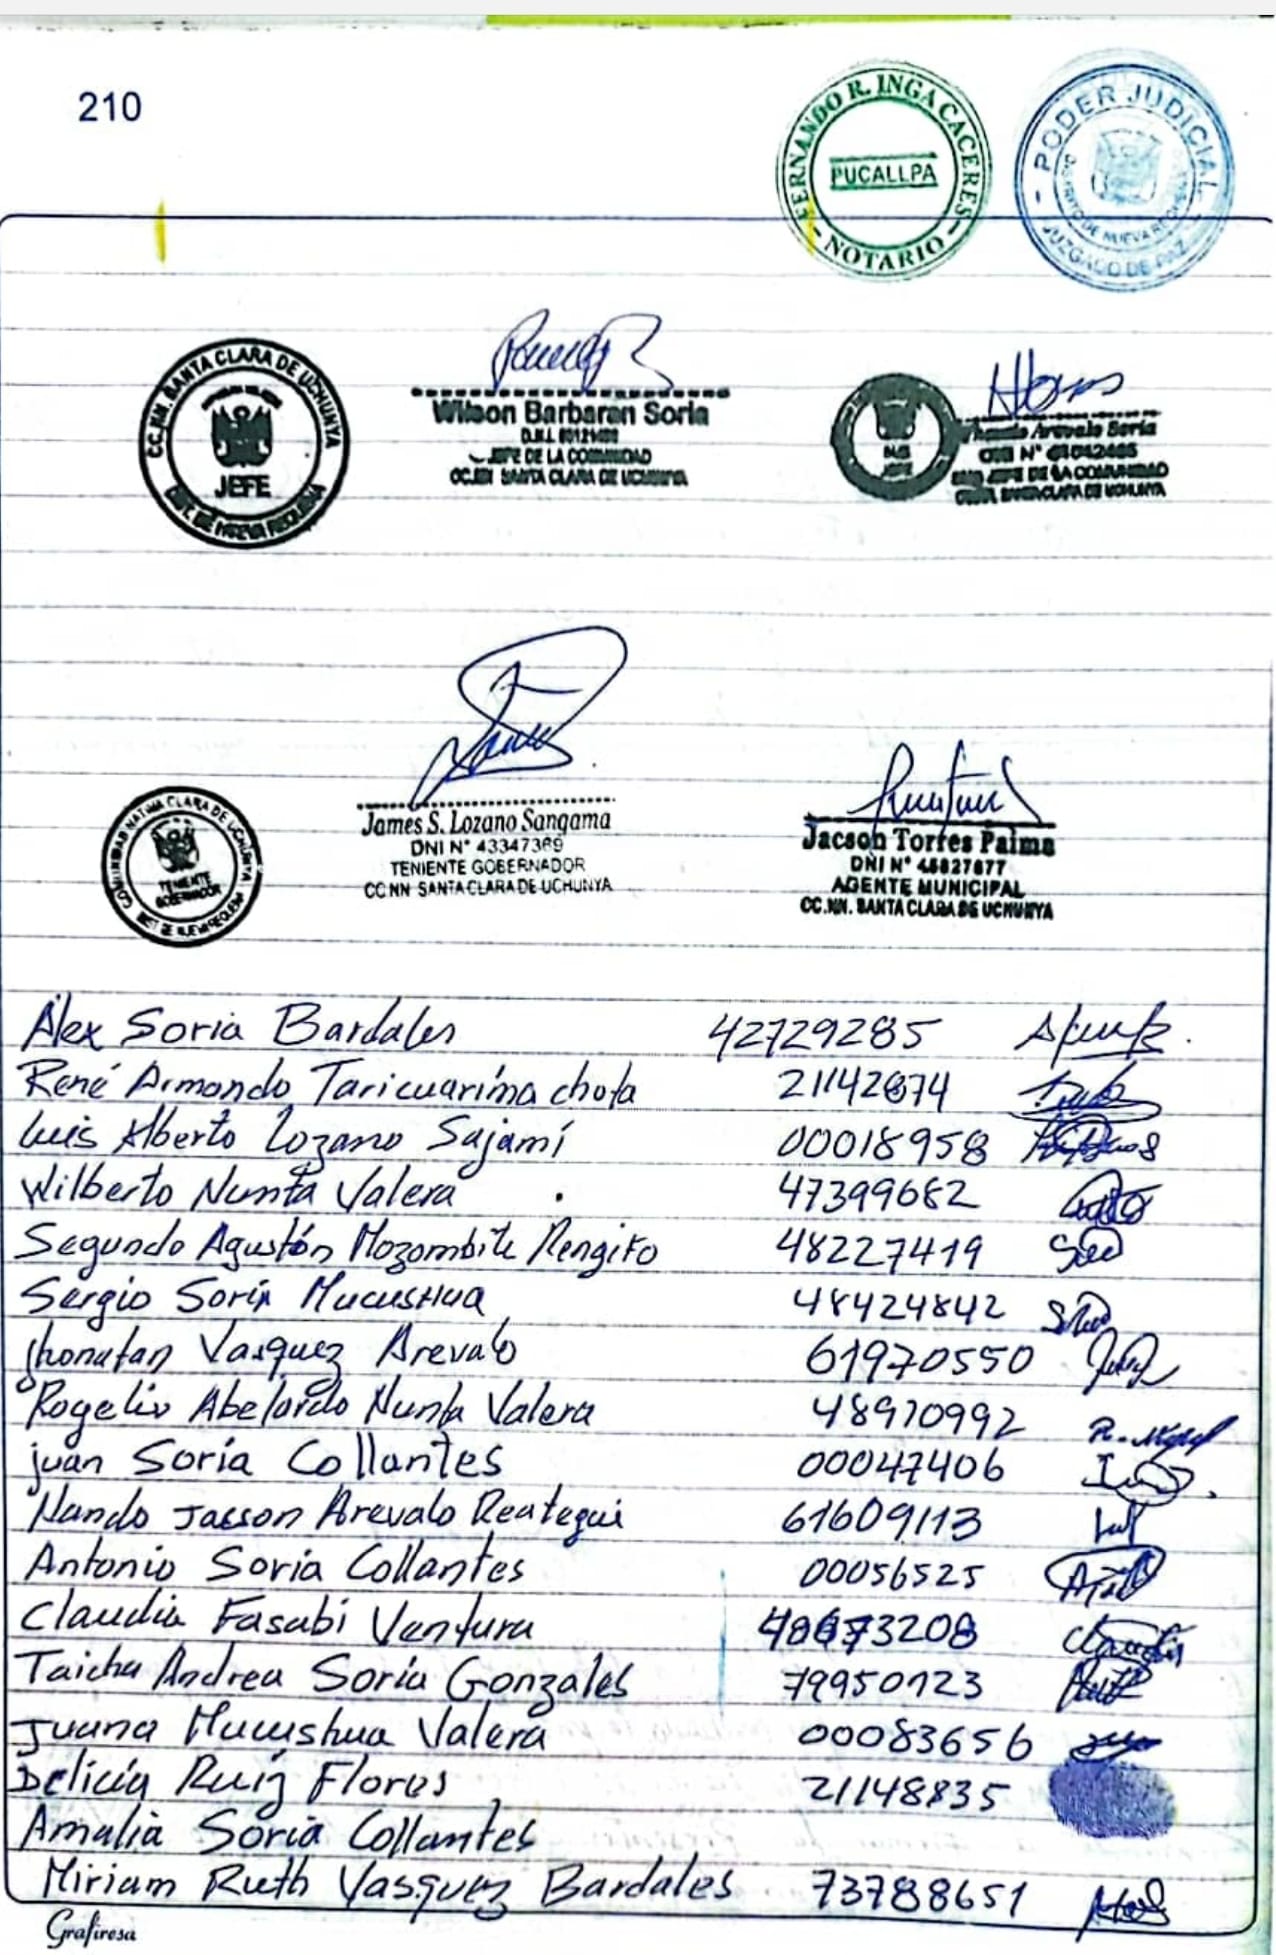 210
FERNANDO R. INGA CACERES
PUCALLPA
- NOTARIO -
- PODER JUDICIAL -
JUZGADO DE PAZ
CC.NN. SANTA CLARA DE UCHUNYA
JEFE
DIST. DE NUEVA REQUENA
Wilson Barbaran Soria
D.N.I.
JEFE DE LA COMUNIDAD
CC.NN SANTA CLARA DE UCHUNYA
Arevalo Soria
DNI N°
JEFE DE LA COMUNIDAD
SANTA CLARA DE UCHUNYA
COMUNIDAD NATIVA CLARA DE UCHUNYA
TENIENTE
GOBERNADOR
DIST. DE NUEVA REQUENA
James S. Lozano Sangama
DNI N° 43347369
TENIENTE GOBERNADOR
CC NN SANTA CLARA DE UCHUNYA
Jacson Torres Paima
DNI N° 45827877
AGENTE MUNICIPAL
CC.NN. SANTA CLARA DE UCHUNYA
Alex Soria Bardales 42729285
René Armando Taricuarima chota 21142874
Luis Alberto Lozano Sajamí 00018958
Wilberto Nunta Valera 47399682
Segundo Agustón Mozombite Rengifo 48227419
Sergio Soria Mucushua 48424842
jhonatan Vasquez Arevalo 61970550
Rogelio Abelardo Nunta Valera 48970992
juan Soria Collantes 00047406
Nando Jacson Arevalo Reategui 61609113
Antonio Soria Collantes 00056525
Claudia Fasabi Ventura 48673208
Taicha Andrea Soria Gonzales 79950123
Juana Mucushua Valera 00083656
Delicia Ruiz Flores 21148835
Amalia Soria Collantes
Miriam Ruth Vasquez Bardales 73788651
Grafiresa